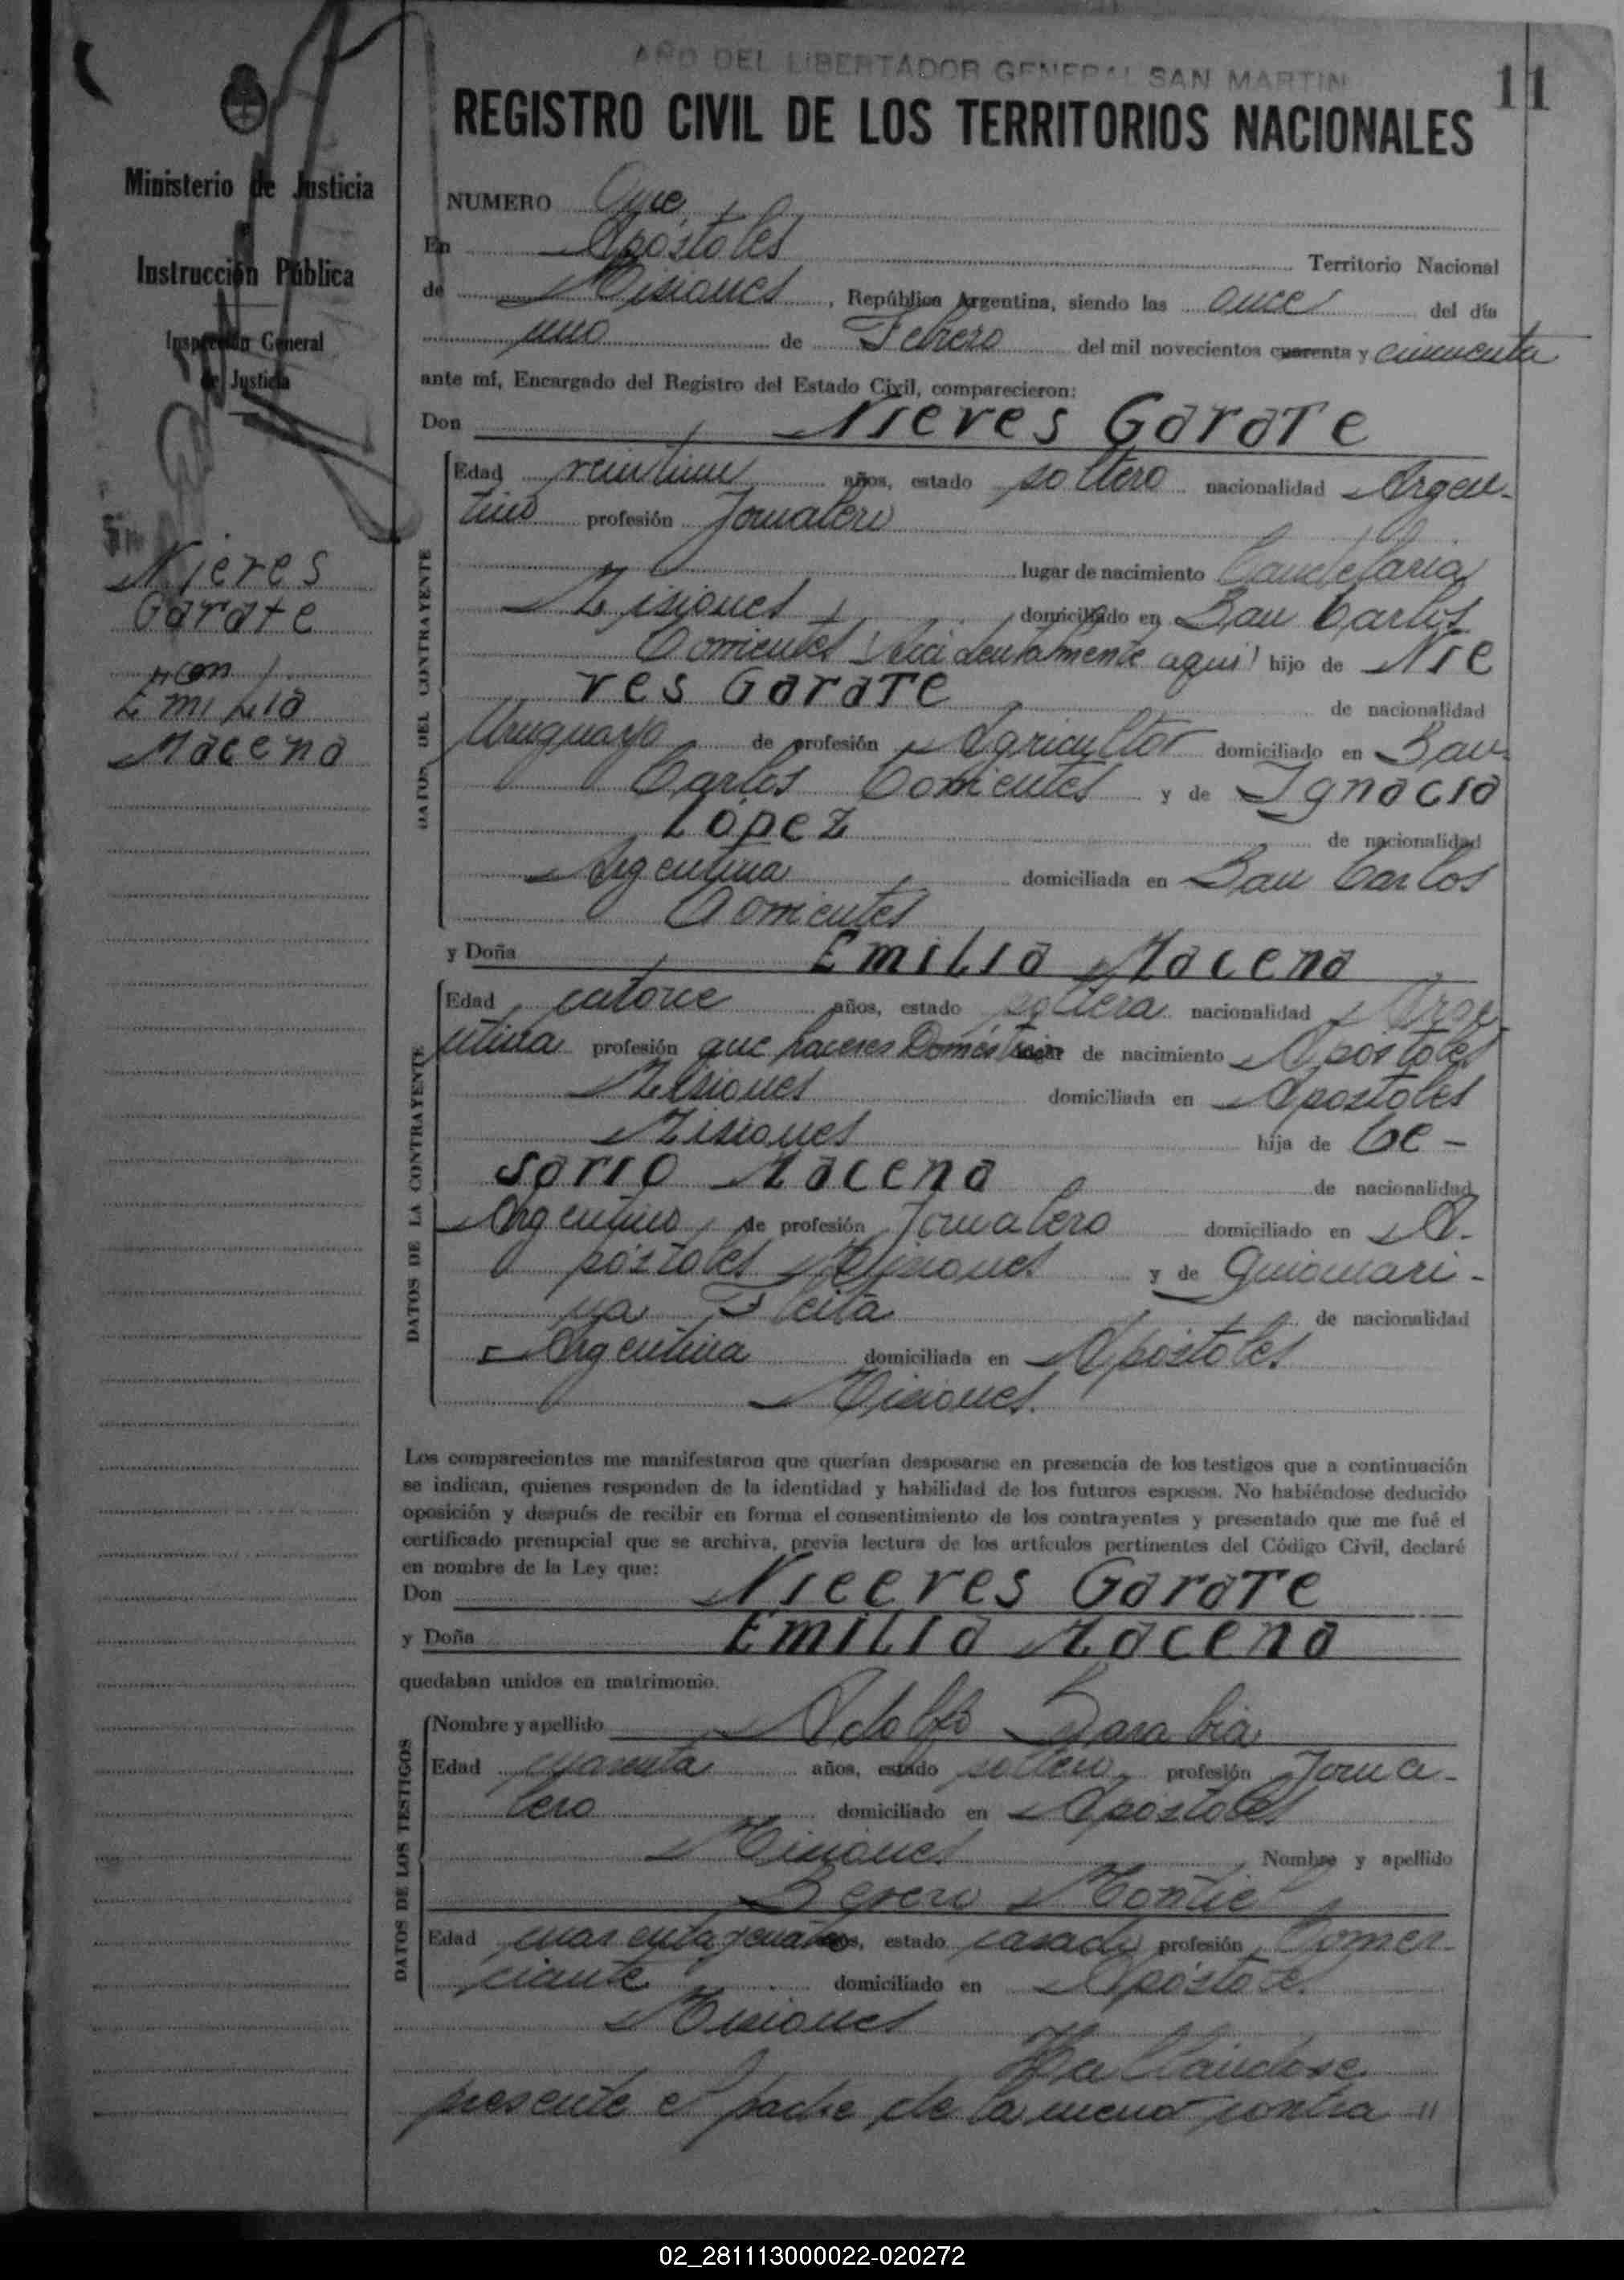 AÑO DEL LIBERTADOR GENERAL SAN MARTIN
11
REGISTRO CIVIL DE LOS TERRITORIOS NACIONALES
Ministerio de Justicia
Instrucción Pública
Inspección General
de Justicia
Nieves
Garate
con
Emilia
Macena
NUMERO Once
En Apóstoles Territorio Nacional
de Misiones, República Argentina, siendo las once del día
uno de Febrero del mil novecientos cuarenta y cincuenta
ante mí, Encargado del Registro del Estado Civil, comparecieron:
Don Nieves Garate
DATOS DEL CONTRAYENTE
Edad años, estado soltero nacionalidad Argen-
tino profesión Jornalero
lugar de nacimiento Candelaria
Misiones domiciliado en San Carlos
Corrientes (Accidentalmente aqui) hijo de Nie
ves Garate de nacionalidad
Uruguayo de profesión Agricultor domiciliado en San
Carlos Corrientes y de Ignacia
López de nacionalidad
Argentina domiciliada en San Carlos
Corrientes
y Doña Emilia Macena
DATOS DE LA CONTRAYENTE
Edad catorce años, estado soltera nacionalidad Arge
ntina profesión que haceres Domésticos lugar de nacimiento Apóstoles
Misiones domiciliada en Apostoles
Misiones hija de Ce-
sario Macena de nacionalidad
Argentino, de profesión Jornalero domiciliado en A-
póstoles Misiones y de
Fleita de nacionalidad
Argentina domiciliada en Apóstoles
Misiones.
Los comparecientes me manifestaron que querían desposarse en presencia de los testigos que a continuación
se indican, quienes responden de la identidad y habilidad de los futuros esposos. No habiéndose deducido
oposición y después de recibir en forma el consentimiento de los contrayentes y presentado que me fué el
certificado prenupcial que se archiva, previa lectura de los artículos pertinentes del Código Civil, declaré
en nombre de la Ley que:
Don Nieeves Garate
y Doña Emilia Macena
quedaban unidos en matrimonio.
DATOS DE LOS TESTIGOS
Nombre y apellido Adolfo Sarabia
Edad cuarenta años, estado soltero, profesión Jorna-
lero domiciliado en Apóstoles
Misiones Nombre y apellido
Montiel
Edad cuarenta años, estado casado profesión Comer-
ciante domiciliado en Apóstoles
Misiones
Hallándose
presente el padre de la menor contra "
02_281113000022-020272